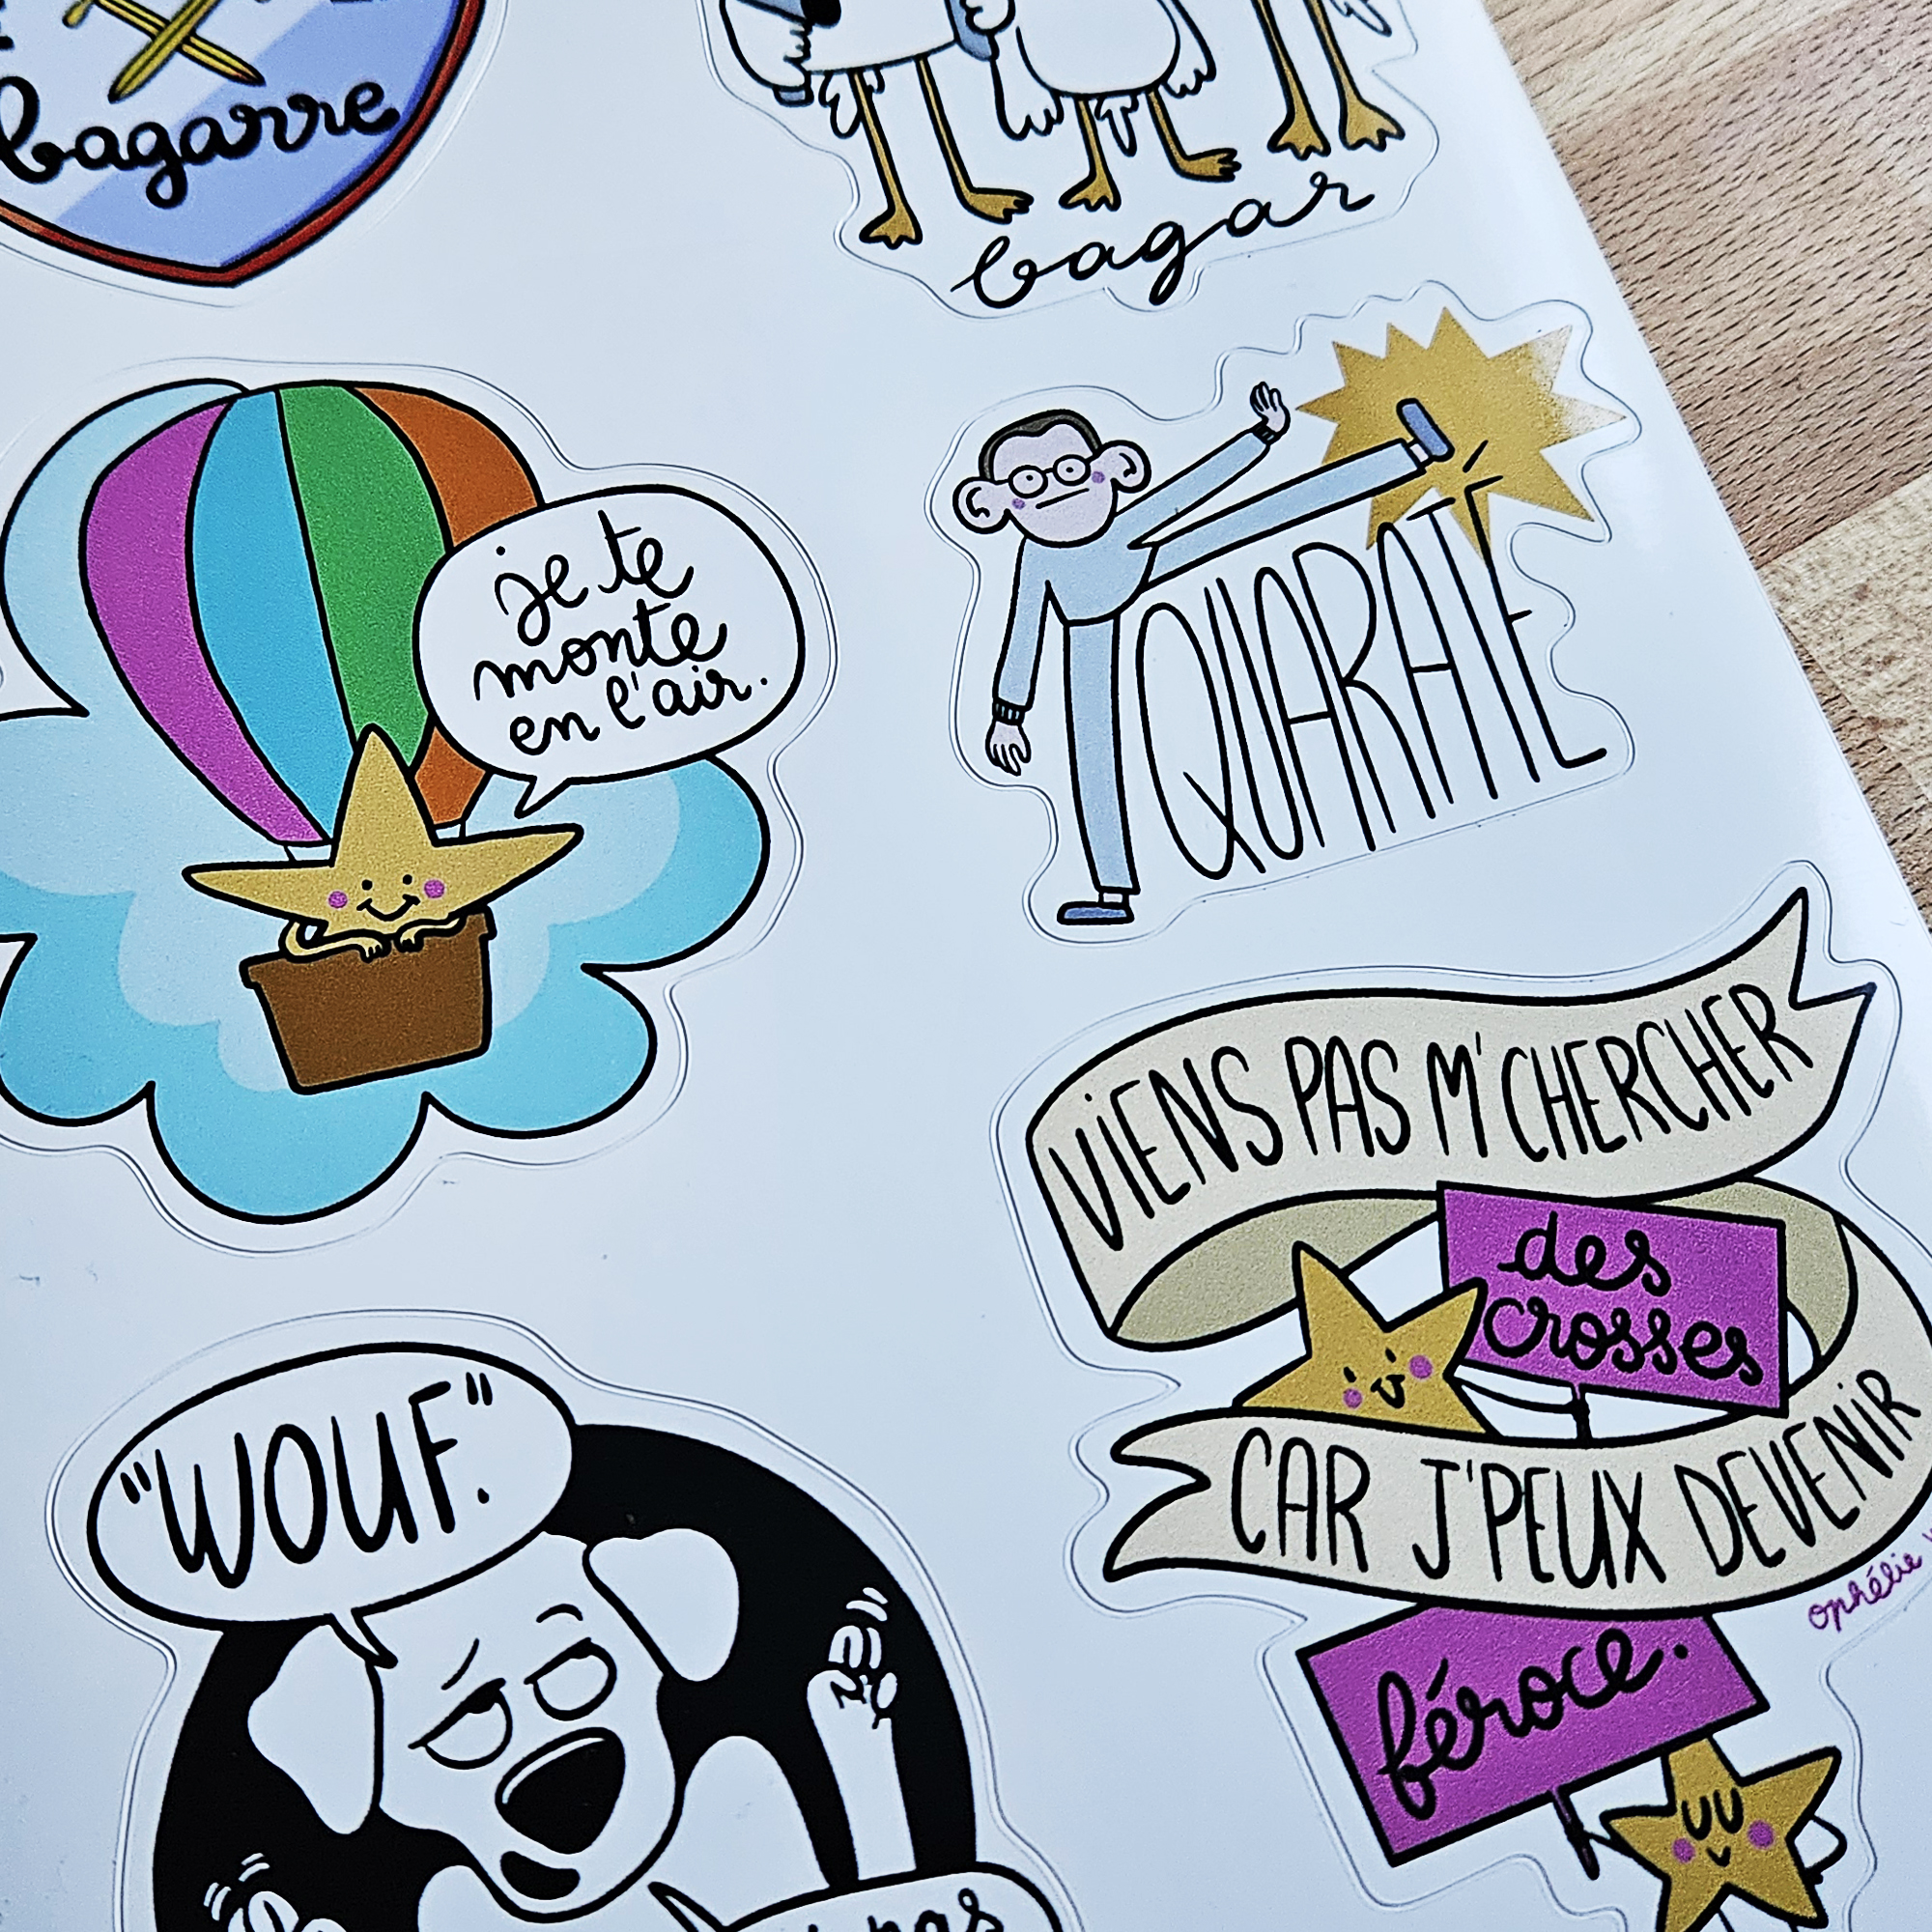 bagarre
bagar
je te
monte
en l'air.
QUARATE
VIENS PAS M'CHERCHER
des
crosses
CAR J'PEUX DEVENIR
ophélie
féroce.
"WOUF."
pas